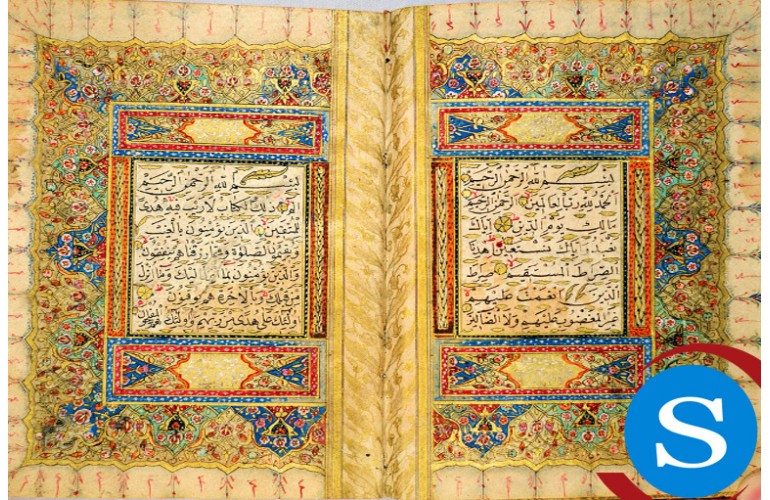 بِسْمِ اللهِ الرَّحْمٰنِ الرَّحِيمِ
الْحَمْدُ لِلّٰهِ رَبِّ الْعَالَمِينَ الرَّحْمٰنِ الرَّحِيمِ
مَالِكِ يَوْمِ الدِّينِ إِيَّاكَ
نَعْبُدُ وَإِيَّاكَ نَسْتَعِينُ اهْدِنَا
الصِّرَاطَ الْمُسْتَقِيمَ صِرَاطَ
الَّذِينَ أَنْعَمْتَ عَلَيْهِمْ
غَيْرِ الْمَغْضُوبِ عَلَيْهِمْ وَلَا الضَّالِّينَ
بِسْمِ اللهِ الرَّحْمٰنِ الرَّحِيمِ
الم ذٰلِكَ الْكِتَابُ لَا رَيْبَ فِيهِ هُدًى
لِلْمُتَّقِينَ الَّذِينَ يُؤْمِنُونَ بِالْغَيْبِ
وَيُقِيمُونَ الصَّلٰوةَ وَمِمَّا رَزَقْنَاهُمْ يُنْفِقُونَ
وَالَّذِينَ يُؤْمِنُونَ بِمَا أُنْزِلَ إِلَيْكَ وَمَا أُنْزِلَ
مِنْ قَبْلِكَ وَبِالْآخِرَةِ هُمْ يُوقِنُونَ
أُولٰئِكَ عَلَى هُدًى مِنْ رَبِّهِمْ وَأُولٰئِكَ هُمُ الْمُفْلِحُونَ
S